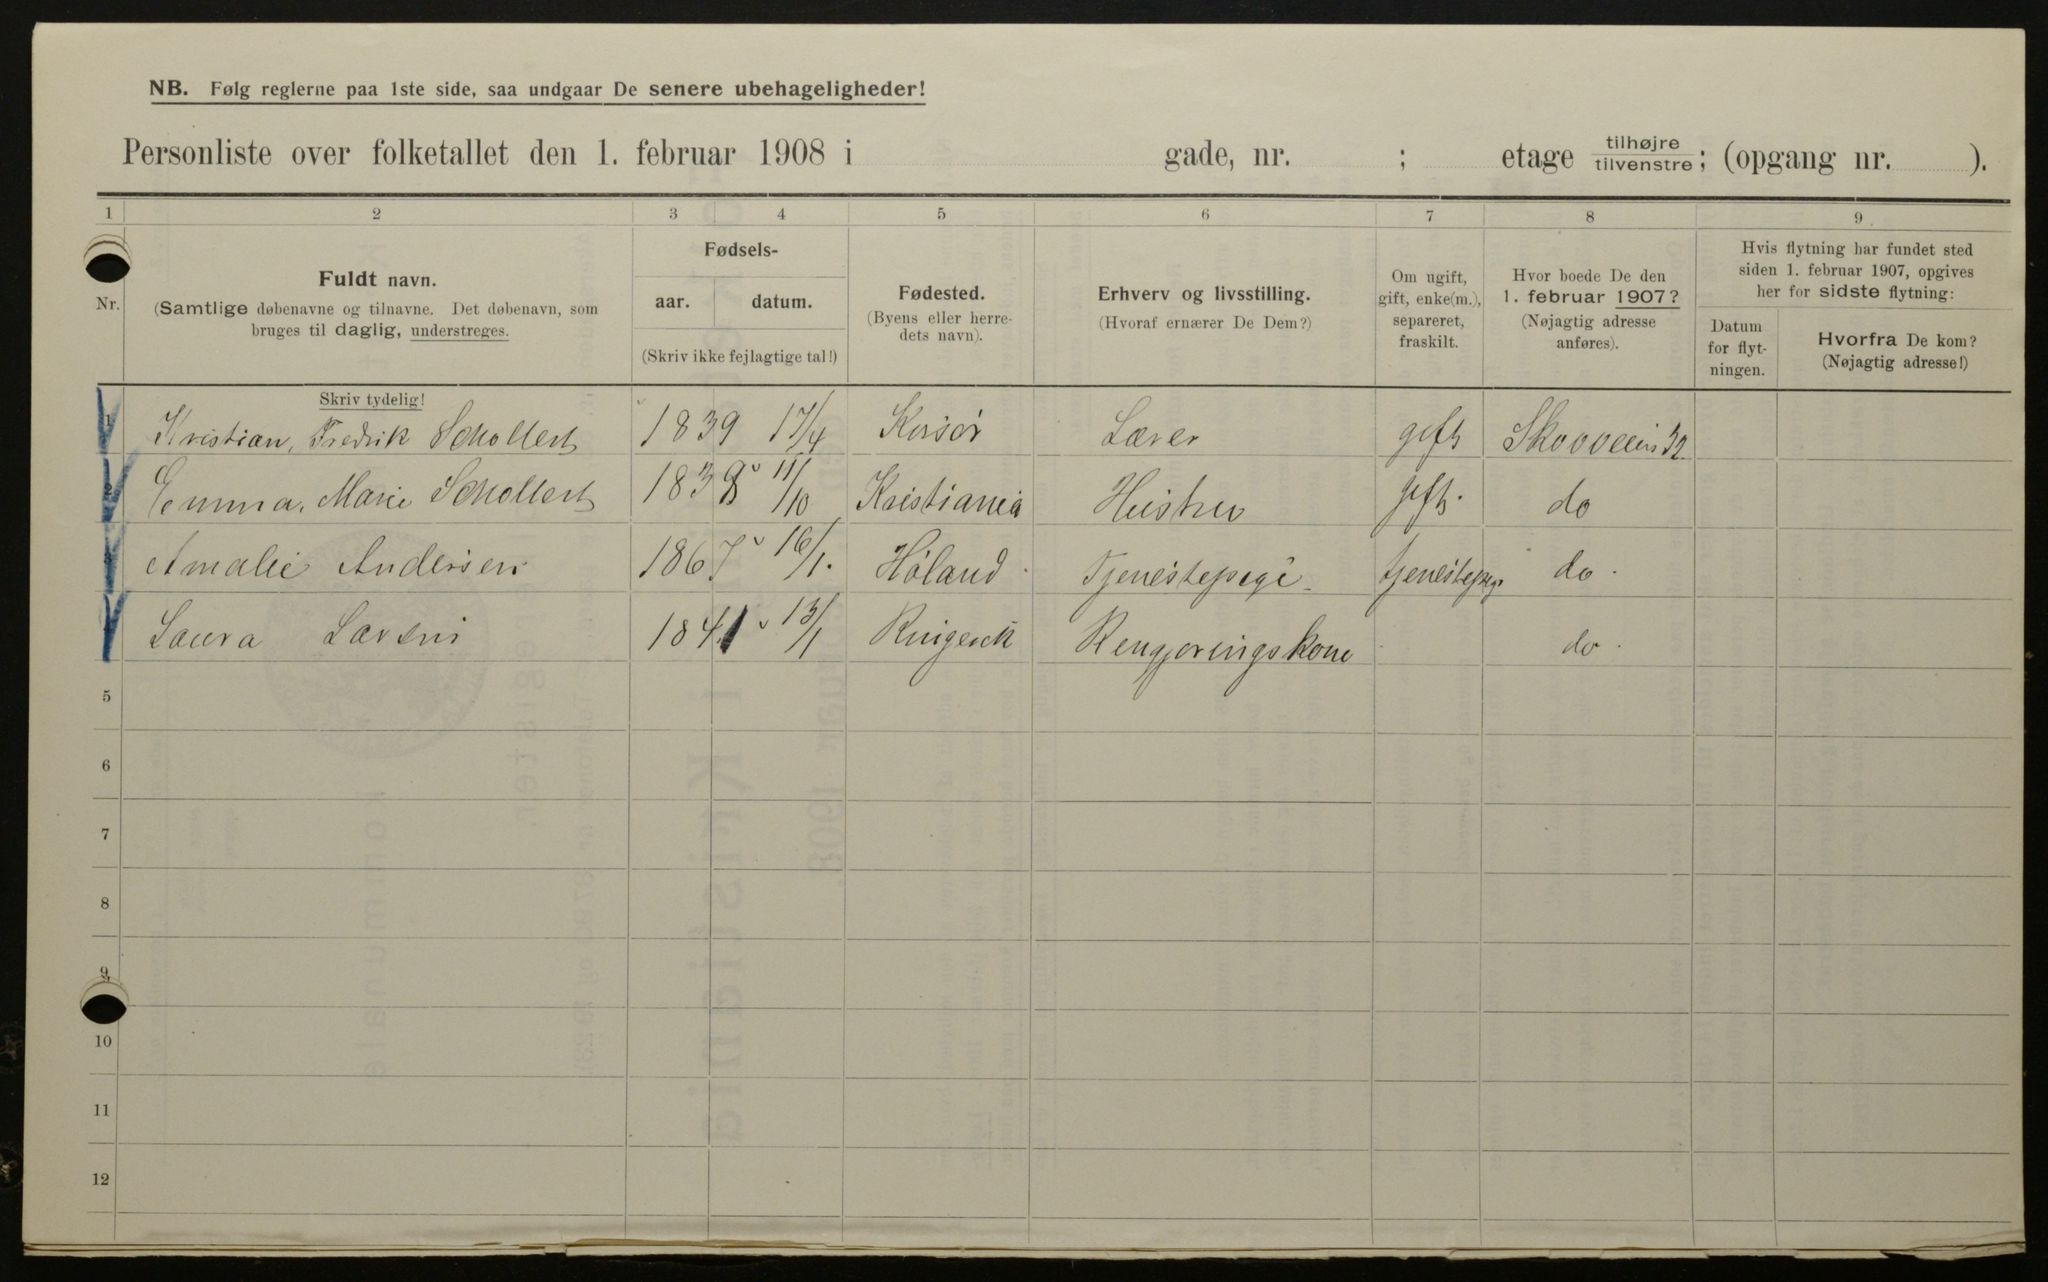 NB. Følg reglerne paa 1ste side, saa undgaar De senere ubehageligheder!
Personliste over folketallet den 1. februar 1908 i gade, nr. ; etage tilhøjre tilvenstre; (opgang nr. ).
1 2 3 4 5 6 7 8 9
Nr.
Fuldt navn.
(Samtlige døbenavne og tilnavne. Det døbenavn, som
bruges til daglig, understreges.
Skriv tydelig!
Fødsels-
aar. datum.
(Skriv ikke fejlagtige tal!)
Fødested.
(Byens eller herre-
dets navn).
Erhverv og livsstilling.
(Hvoraf ernærer De Dem?)
Om ugift,
gift, enke(m.),
separeret,
fraskilt.
Hvor boede De den
1. februar 1907?
(Nøjagtig adresse
anføres).
Hvis flytning har fundet sted
siden 1. februar 1907, opgives
her for sidste flytning:
Datum
for flyt-
ningen.
Hvorfra De kom?
(Nøjagtig adresse!)
1 Kristian, Fredrik Schollert 1839 17/4 Korsör Lærer gift Skovveien 32
2 Emma, Marie Schollert 1839 11/10 Kristiania gift. do
3 Amalie Andersen 1867 16/1. Höland Tjenestepige tjenestepig. do.
4 Laura Larsen 1841 13/1 Rengjøringskone do.
5
6
7
8
9
10
11
12